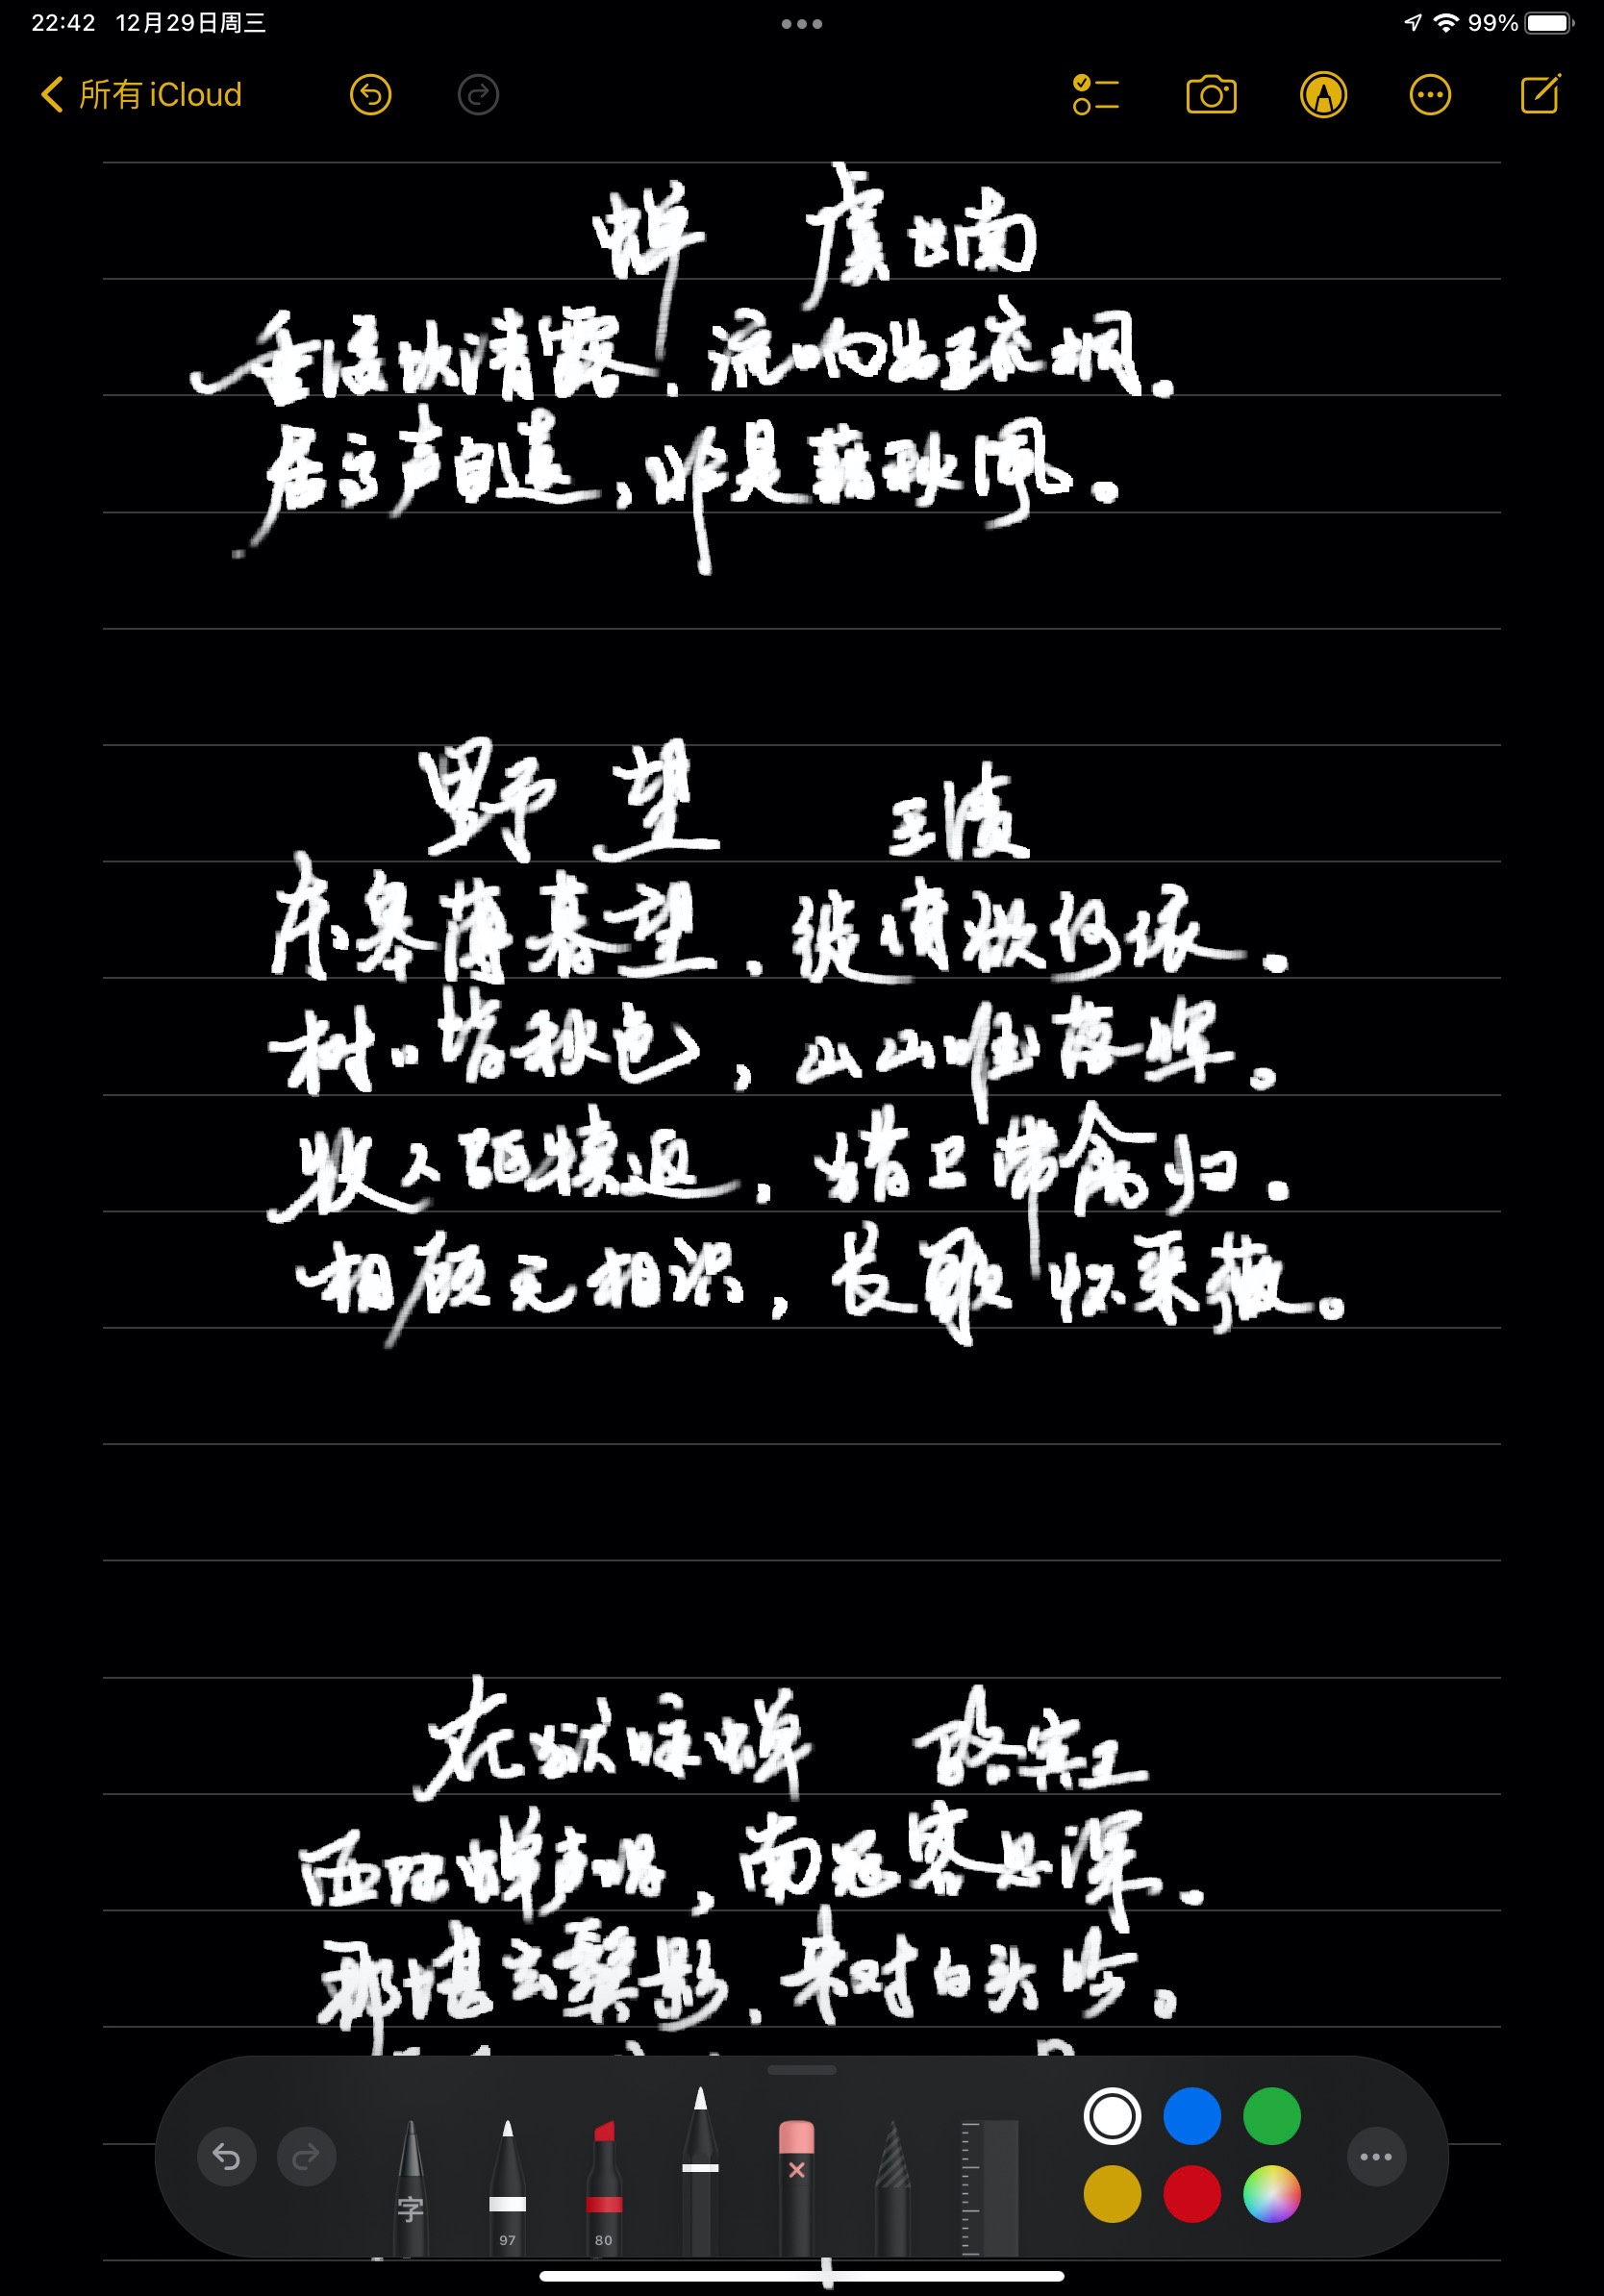 22:42 12月29日周三 99%
所有 iCloud
蝉 虞世南
垂緌饮清露，流响出疏桐。
居高声自远，非是藉秋风。
野望 王绩
东皋薄暮望，徙倚欲何依。
树々皆秋色，山山唯落晖。
牧人驱犊返，猎马带禽归。
相顾无相识，长歌怀采薇。
在狱咏蝉 骆宾王
西陆蝉声唱，南冠客思深。
那堪玄鬓影，来对白头吟。
字 97 80